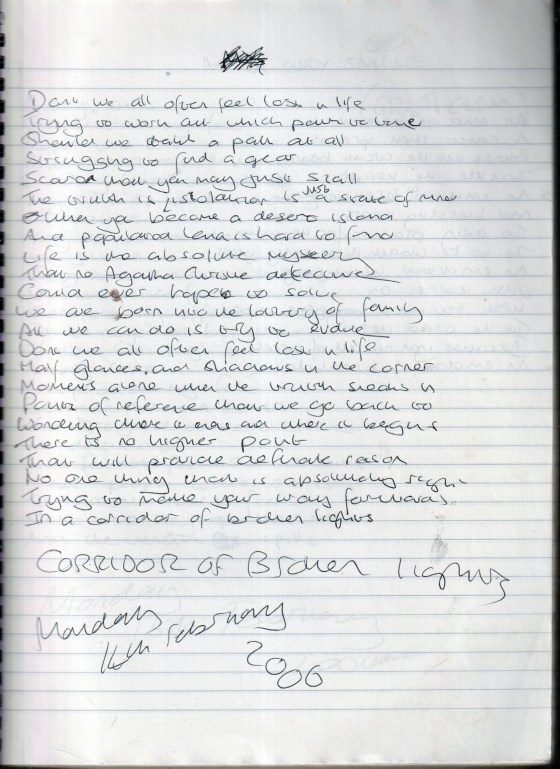 Don't we all often feel lost in life
Trying to work out which path to take
Should we take a path at all
Struggling to find a gear
Scared that you may just stall
The truth is isolation is just a state of mind
When you become a desert island
And populated land is hard to find
Life is the absolute mystery
That no Agatha Christie detective
Could ever hope to solve
We are born into the lottery of family
All we can do is try to evolve
Don't we all often feel lost in life
Half glances and shadows in the corner
Moments alone when the truth sneaks in
Points of reference that we go back to
Wondering where it ends and where it begins
There is no higher point
That will provide definite reason
No one thing that is absolutely right
Trying to make your way forwards
In a corridor of broken lights
CORRIDOR OF Broken lights
Monday
February
2006